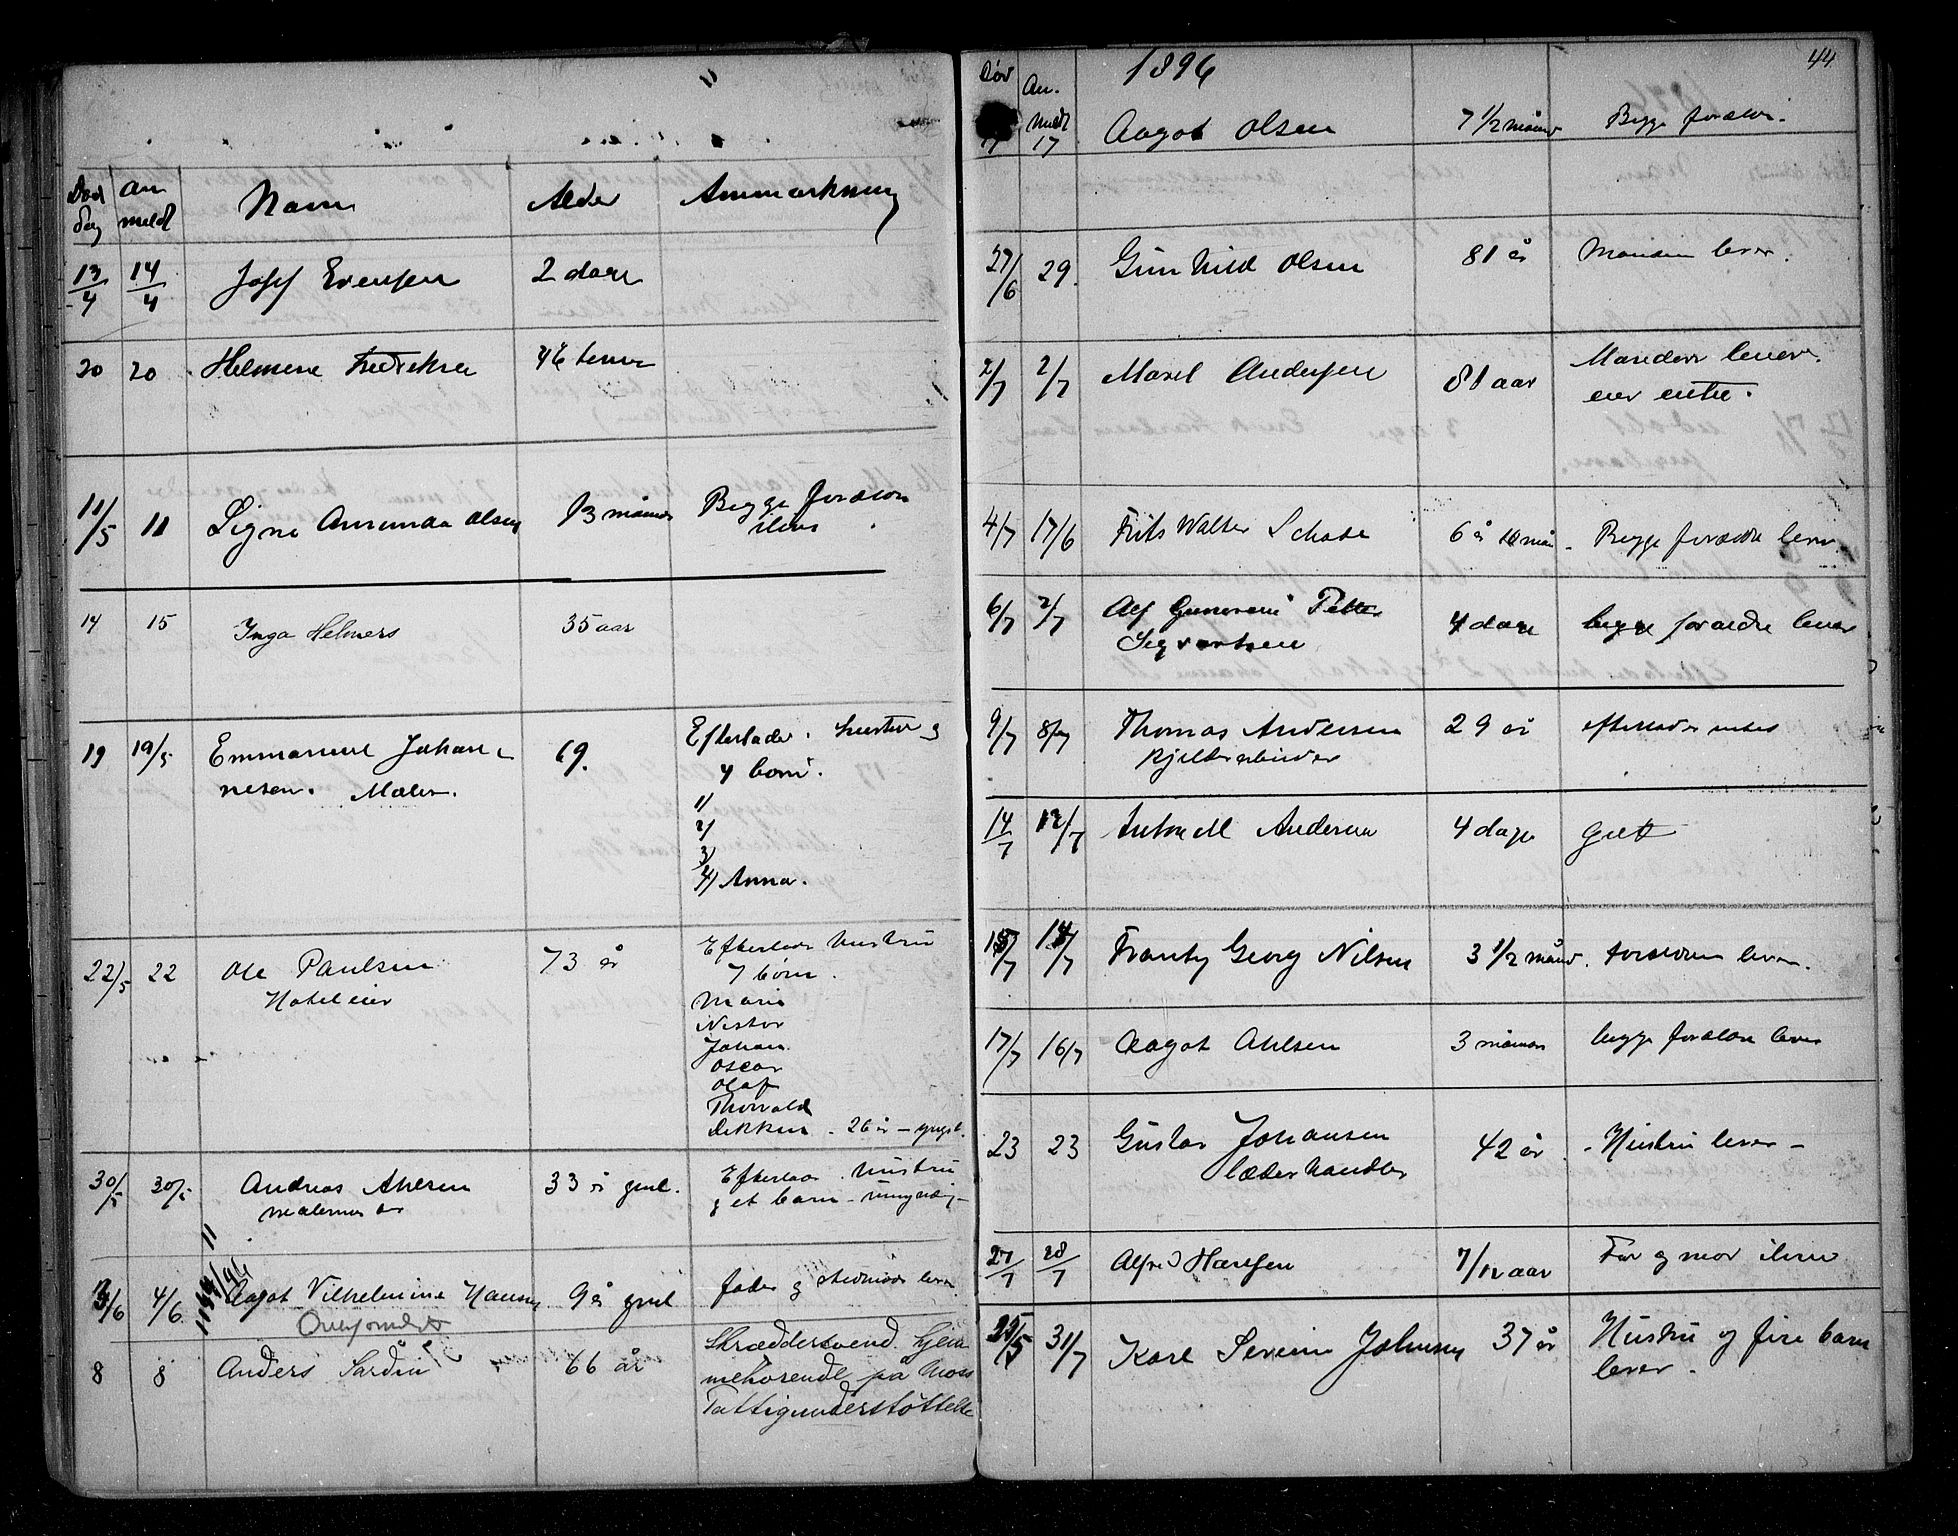 Død An
dag meldt Navn Alder Anmærkning
13/4 14/4 Josef Evensen 2 dage
20 20 Helmine Fredriksen 46
11/5 11 Signe Amunda Olsen 13 måned Begge forældre
14 15 Inga Helmers 35 aar
19 19/5 Emmanuel Johan- 69. Efterlader hustru og
nesen. Maler. 4 børn.
1/
2/
3/
4/ Anna.
22/5 22 Ole Paulsen 73 år Efterlader hustru
Hoteleier 7 børn.
Marie
Nestor
Johan
Oscar
Olaf
Thorvald
26 år – yngst.
30/5 30/5 Andreas Ahlsen 33 år gml. Efterlader hustru
og et barn – umyndig –
3/6 4/6 Aagot Vilhelmine Hansen 9 år gml fader og stedmoder lever
Overformynd
8 8 Anders Sardin 66 år Skræddersvend hjem-
mehørende på Moss
Fattigunderstøttelse
1896 44
Død An-
meldt
17 Aagot Olsen 7 1/2 måned Begge forældre.
27/6 29. Gunhild Olsen 81 år Manden lever.
2/7 2/7 Maret Andersen 81 aar Manden lever.
eier intet.
4/7 17/6 Frits Walter Schade 6 år 10 mån. Begge forældre lever.
6/7 7/7 Alf Petter 4 dage begge forældre lever
Sigvartsen
9/7 8/7 Thomas Andersen 29 år efterlader intet
14/7 12/7 Anton M Andersen 4 dage gift
15/7 14/7 Frantz Georg Nilsen 3 1/2 måned. forældrene lever.
17/7 16/7 Aagot Ahlsen 3 måneder begge forældre lever
23 23 Gustav Johansen 42 år – Hustru lever –
læderhandler
27/7 28/7 Alfred Hansen 7/12 aar Far og mor ilive
31/7 Karl Severin Johnsen 37 år Hustru og fire barn
lever.